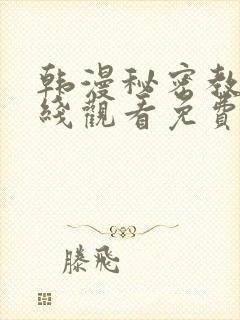 韩漫秘密教
綫觀看免費
滕飛